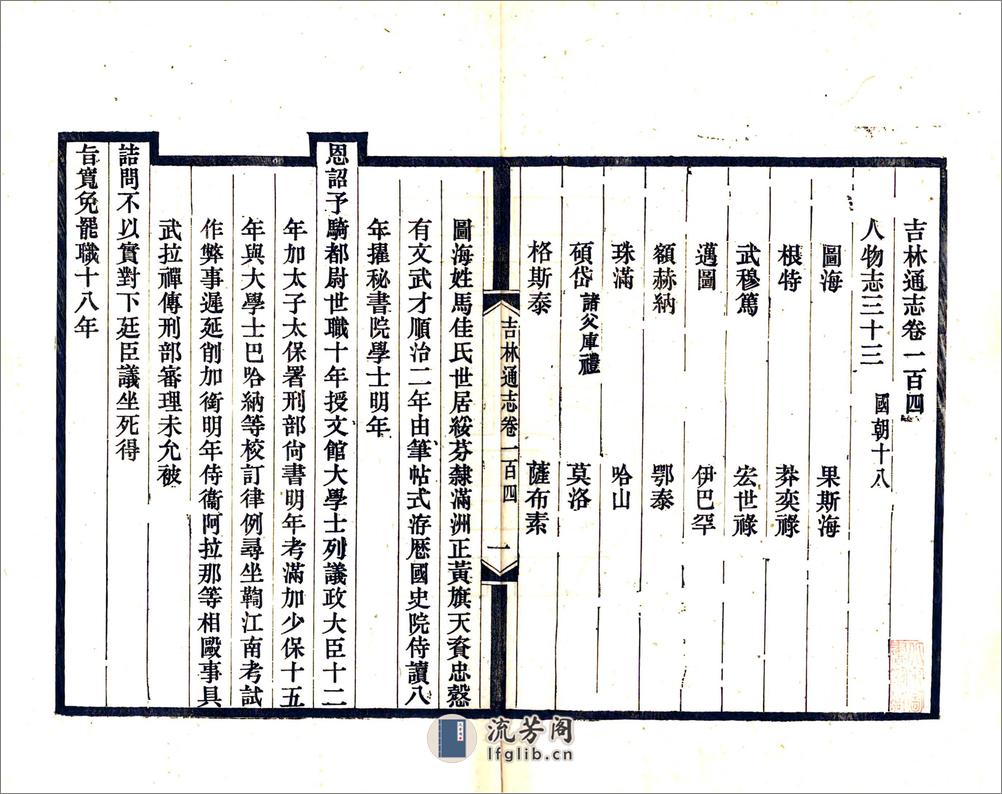 吉林通志卷一百四
人物志三十三 國朝十八
圖海 果斯海
根特 莽奕祿
武穆篤 宏世祿
邁圖 伊巴罕
額赫納 鄂泰
珠滿 哈山
碩岱 諸父庫禮 莫洛
格斯泰 薩布素
吉林通志卷一百四 一
圖海姓馬佳氏世居綏芬隸滿洲正黃旗天資忠慤
有文武才順治二年由筆帖式洊歷國史院侍讀八
年擢秘書院學士明年
恩詔予騎都尉世職十年授文館大學士列議政大臣十二
年加太子太保署刑部尚書明年考滿加少保十五
年與大學士巴哈納等校訂律例尋坐鞫江南考試
作弊事遲延削加銜明年侍衞阿拉那等相毆事具
武拉禪傳刑部審理未允被
詰問不以實對下廷臣議坐死得
旨寬免罷職十八年
流芳阁
lfglib.cn